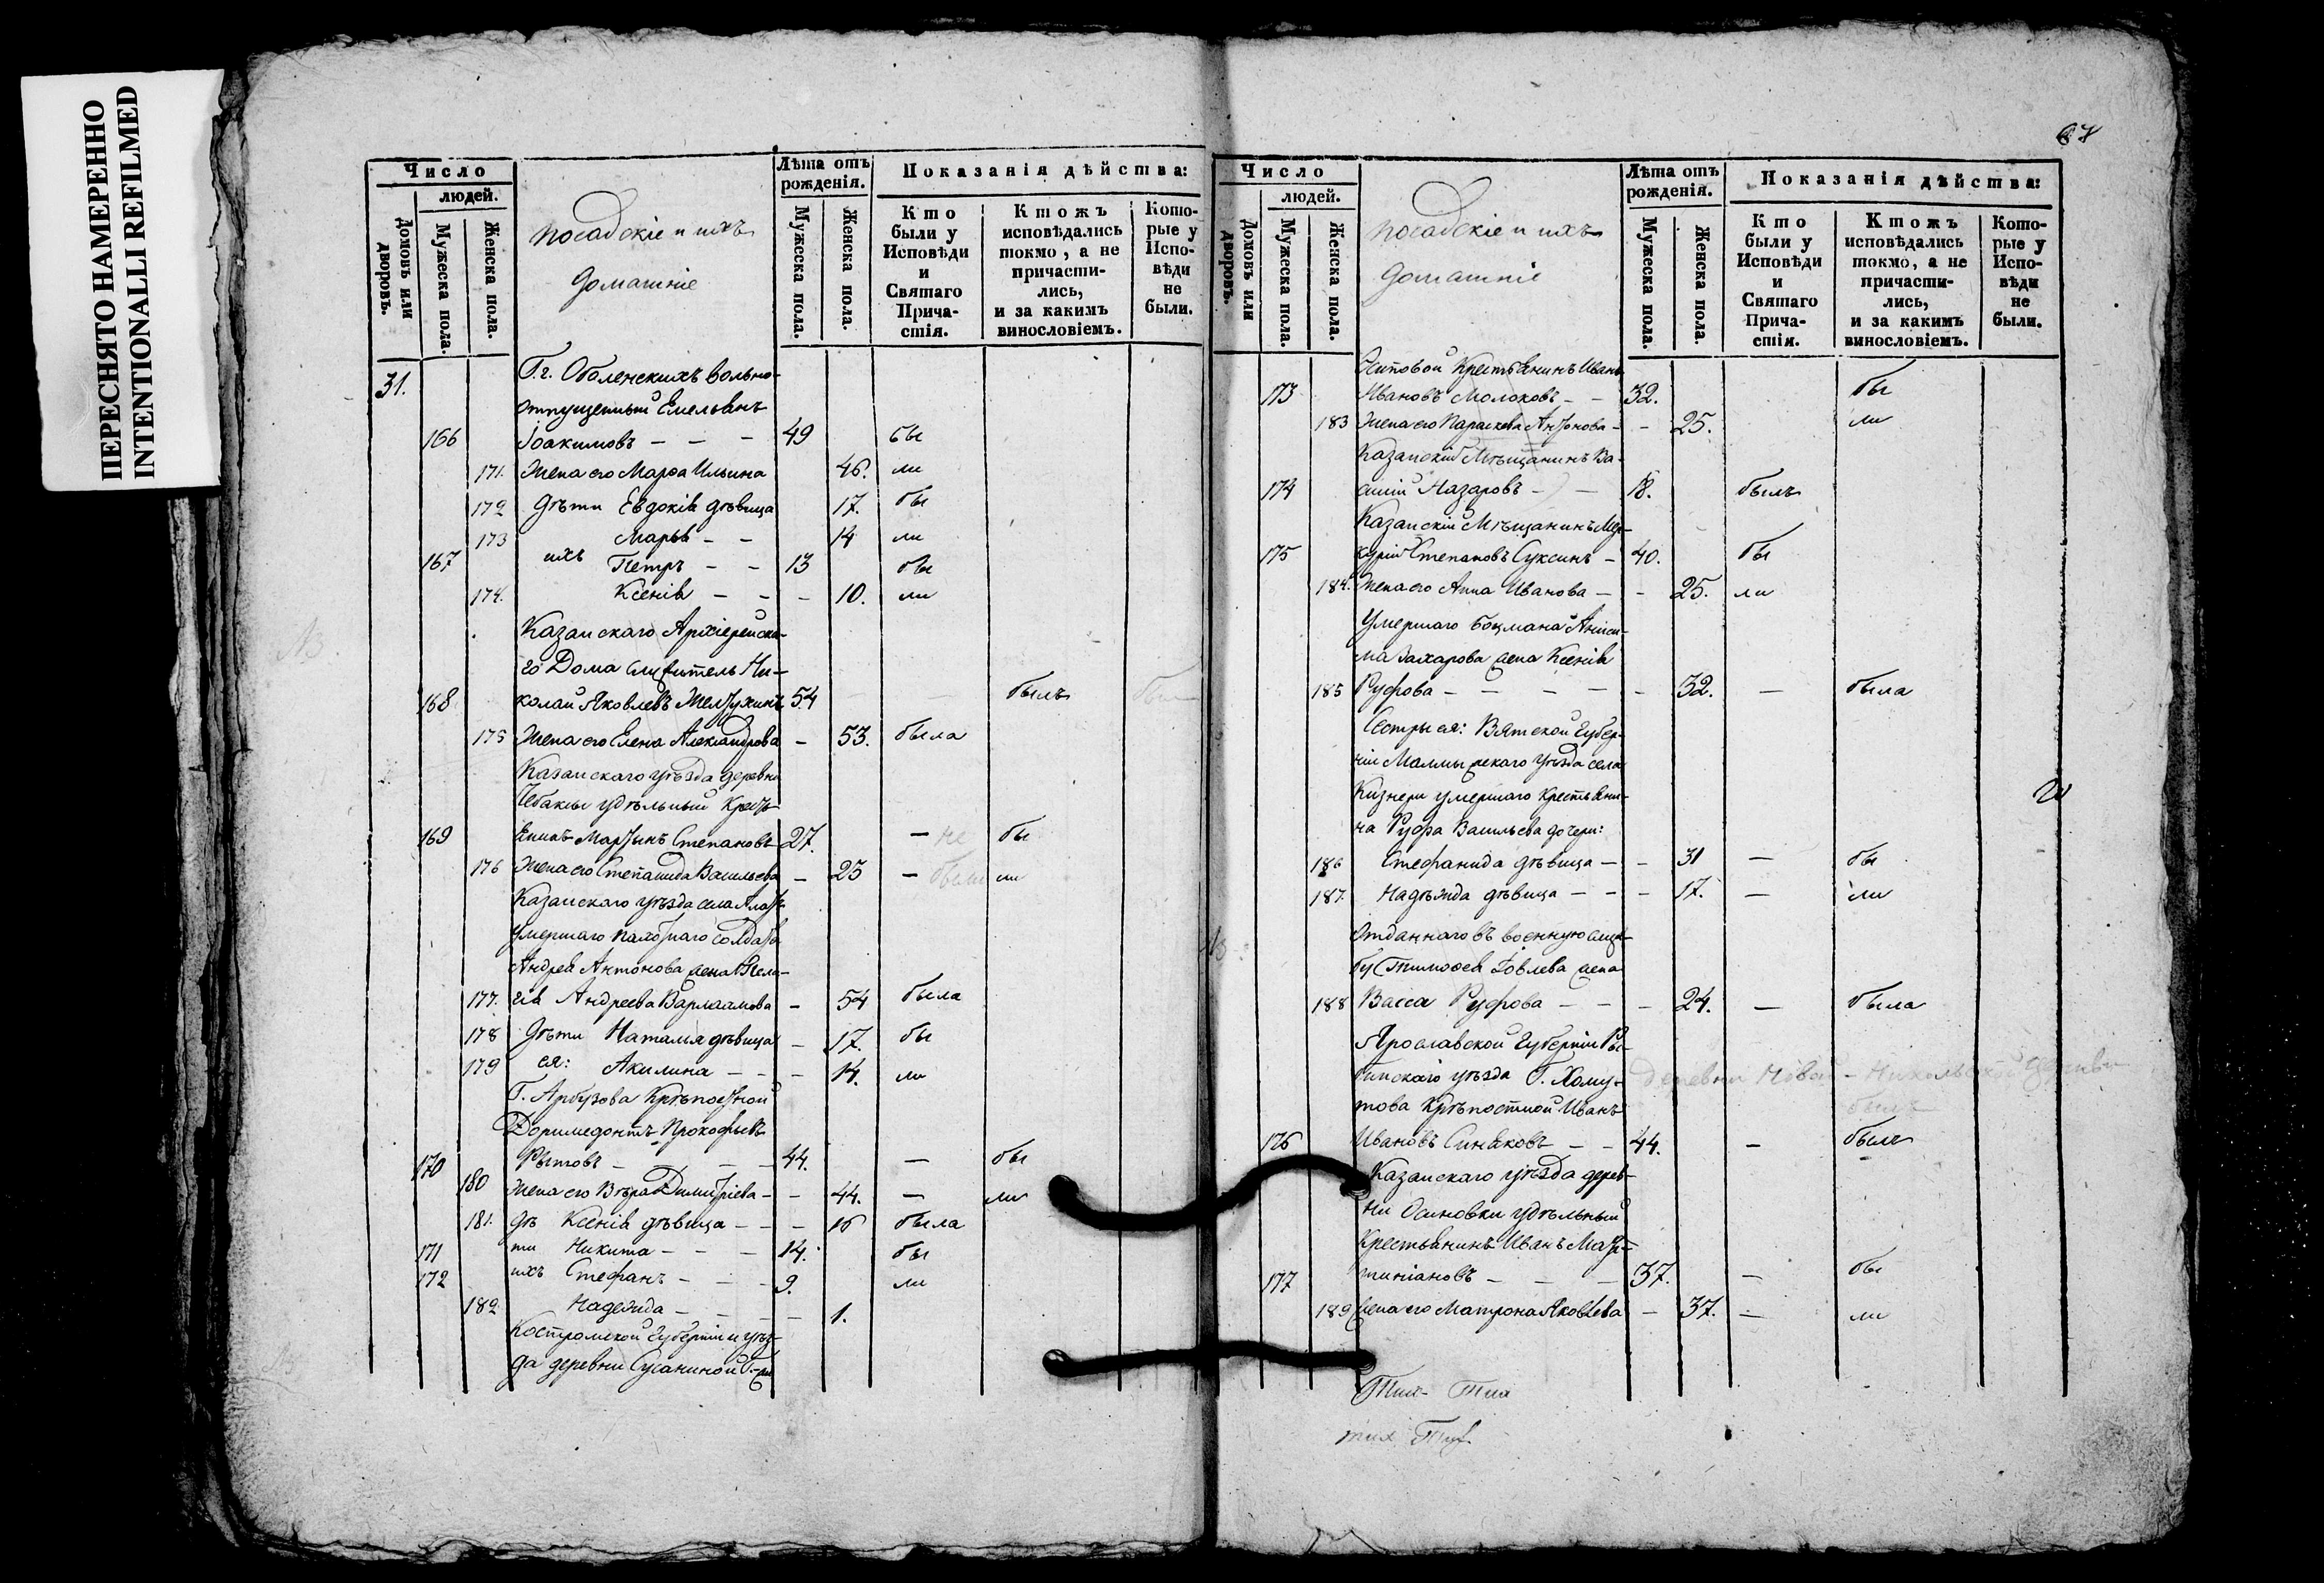 ПЕРЕСНЯТО НАМЕРЕННО
INTENTIONALLI REFILMED
Число
людей.
Домовъ или дворовъ.
Мужеска пола.
Женска пола.
посадскіе и ихъ
домашніе
Лѣта отъ рожденія.
Мужеска пола.
Женска пола.
Показанія дѣйства:
Кто были у Исповѣди и Святаго Прича- стія.
Ктожъ исповѣдались токмо, а не причасти- лись, и за какимъ винословіемъ.
Кото- рые у Испо- вѣди не были.
31. Г.г. Оболенскихъ вольно-
отпущенный Емельянъ
166 Іоакимовъ — — — 49 бы
171. Жена его Марѳа Ильина 46. ли
172 Дѣти Евдокія дѣвица 17. бы
173 Марья — — 14 ли
167 ихъ Петръ — — 13 бы
174. Ксенія — — — 10. ли
Казанскаго Архіерейска-
го Дома служитель Ни-
168 колай Яковлевъ Желтухинъ 54 былъ
175 Жена его Елена Александрова — 53. была
Казанскаго уѣзда деревни
Чебаксы удѣльный Кресть-
169 янинъ Мартынъ Степановъ 27. — не бы
176 Жена его Степанида Васильева — 25 — были ли
Казанскаго уѣзда села
умершаго пахотнаго солдата
Андрея Антонова жена Пела-
177. гія Андреева Варлаамова — 54 была
178 Дѣти Наталья дѣвица — 17. бы
179 ея: Акилина — — — 14. ли
Г. Арбузова Крѣпостной
Доримедонтъ Прокофьевъ
170 Рытовъ — — — 44. — бы
180 Жена его Вѣра Димитріева — — 44. — ли
181. дѣ Ксенія дѣвица — — — 16 была
171 ти Никита — — — 14. бы
172 ихъ Стефанъ — — — 9. ли
182 Надежда — — — 1.
Костромской Губерніи и уѣз-
да деревни Сусаниной
68
Число
людей.
Домовъ или дворовъ.
Мужеска пола.
Женска пола.
посадскіе и ихъ
домашніе
Лѣта отъ рожденія.
Мужеска пола.
Женска пола.
Показанія дѣйства:
Кто были у Исповѣди и Святаго Прича- стія.
Ктожъ исповѣдались токмо, а не причасти- лись, и за какимъ винословіемъ.
Кото- рые у Испо- вѣди не были.
Крестьянинъ Иванъ
173 Ивановъ Молоковъ — — 32. бы
183 Жена его Параскева Антонова — — 25. ли
Казанскій Мѣщанинъ Ва-
174 силій Назаровъ — — 18. былъ
Казанскій Мѣщанинъ Мер-
175 курій Степановъ Суксинъ — 40. бы
184. Жена его Анна Иванова — — 25. ли
Умершаго Боцмана Аниси-
ма Захарова жена Ксенія
185 Руфова — — — — — 32. — была
Сестры ея: Вятской Губер-
ніи Малмыжскаго Уѣзда села
Кизнери умершаго крестьяни-
на Руфа Васильева дочери:
186 Стефанида дѣвица — — 31 — бы
187. Надѣжда дѣвица — — — 17. — ли
Отданнаго въ военную служ-
бу Тимоѳея Іовлева жена
188 Васса Руфова — — — 24. — была
Ярославской Губерніи Ры-
бинскаго уѣзда Г. Хому-
това Крѣпостной Иванъ
176 Ивановъ Синяковъ — — 44. — былъ
Казанскаго уѣзда дерев-
ни Осиновки удѣльный
Крестьянинъ Иванъ Март-
177 тиніановъ — — — 37. — бы
189 Жена его Матрона Яковлева — 37. — ли